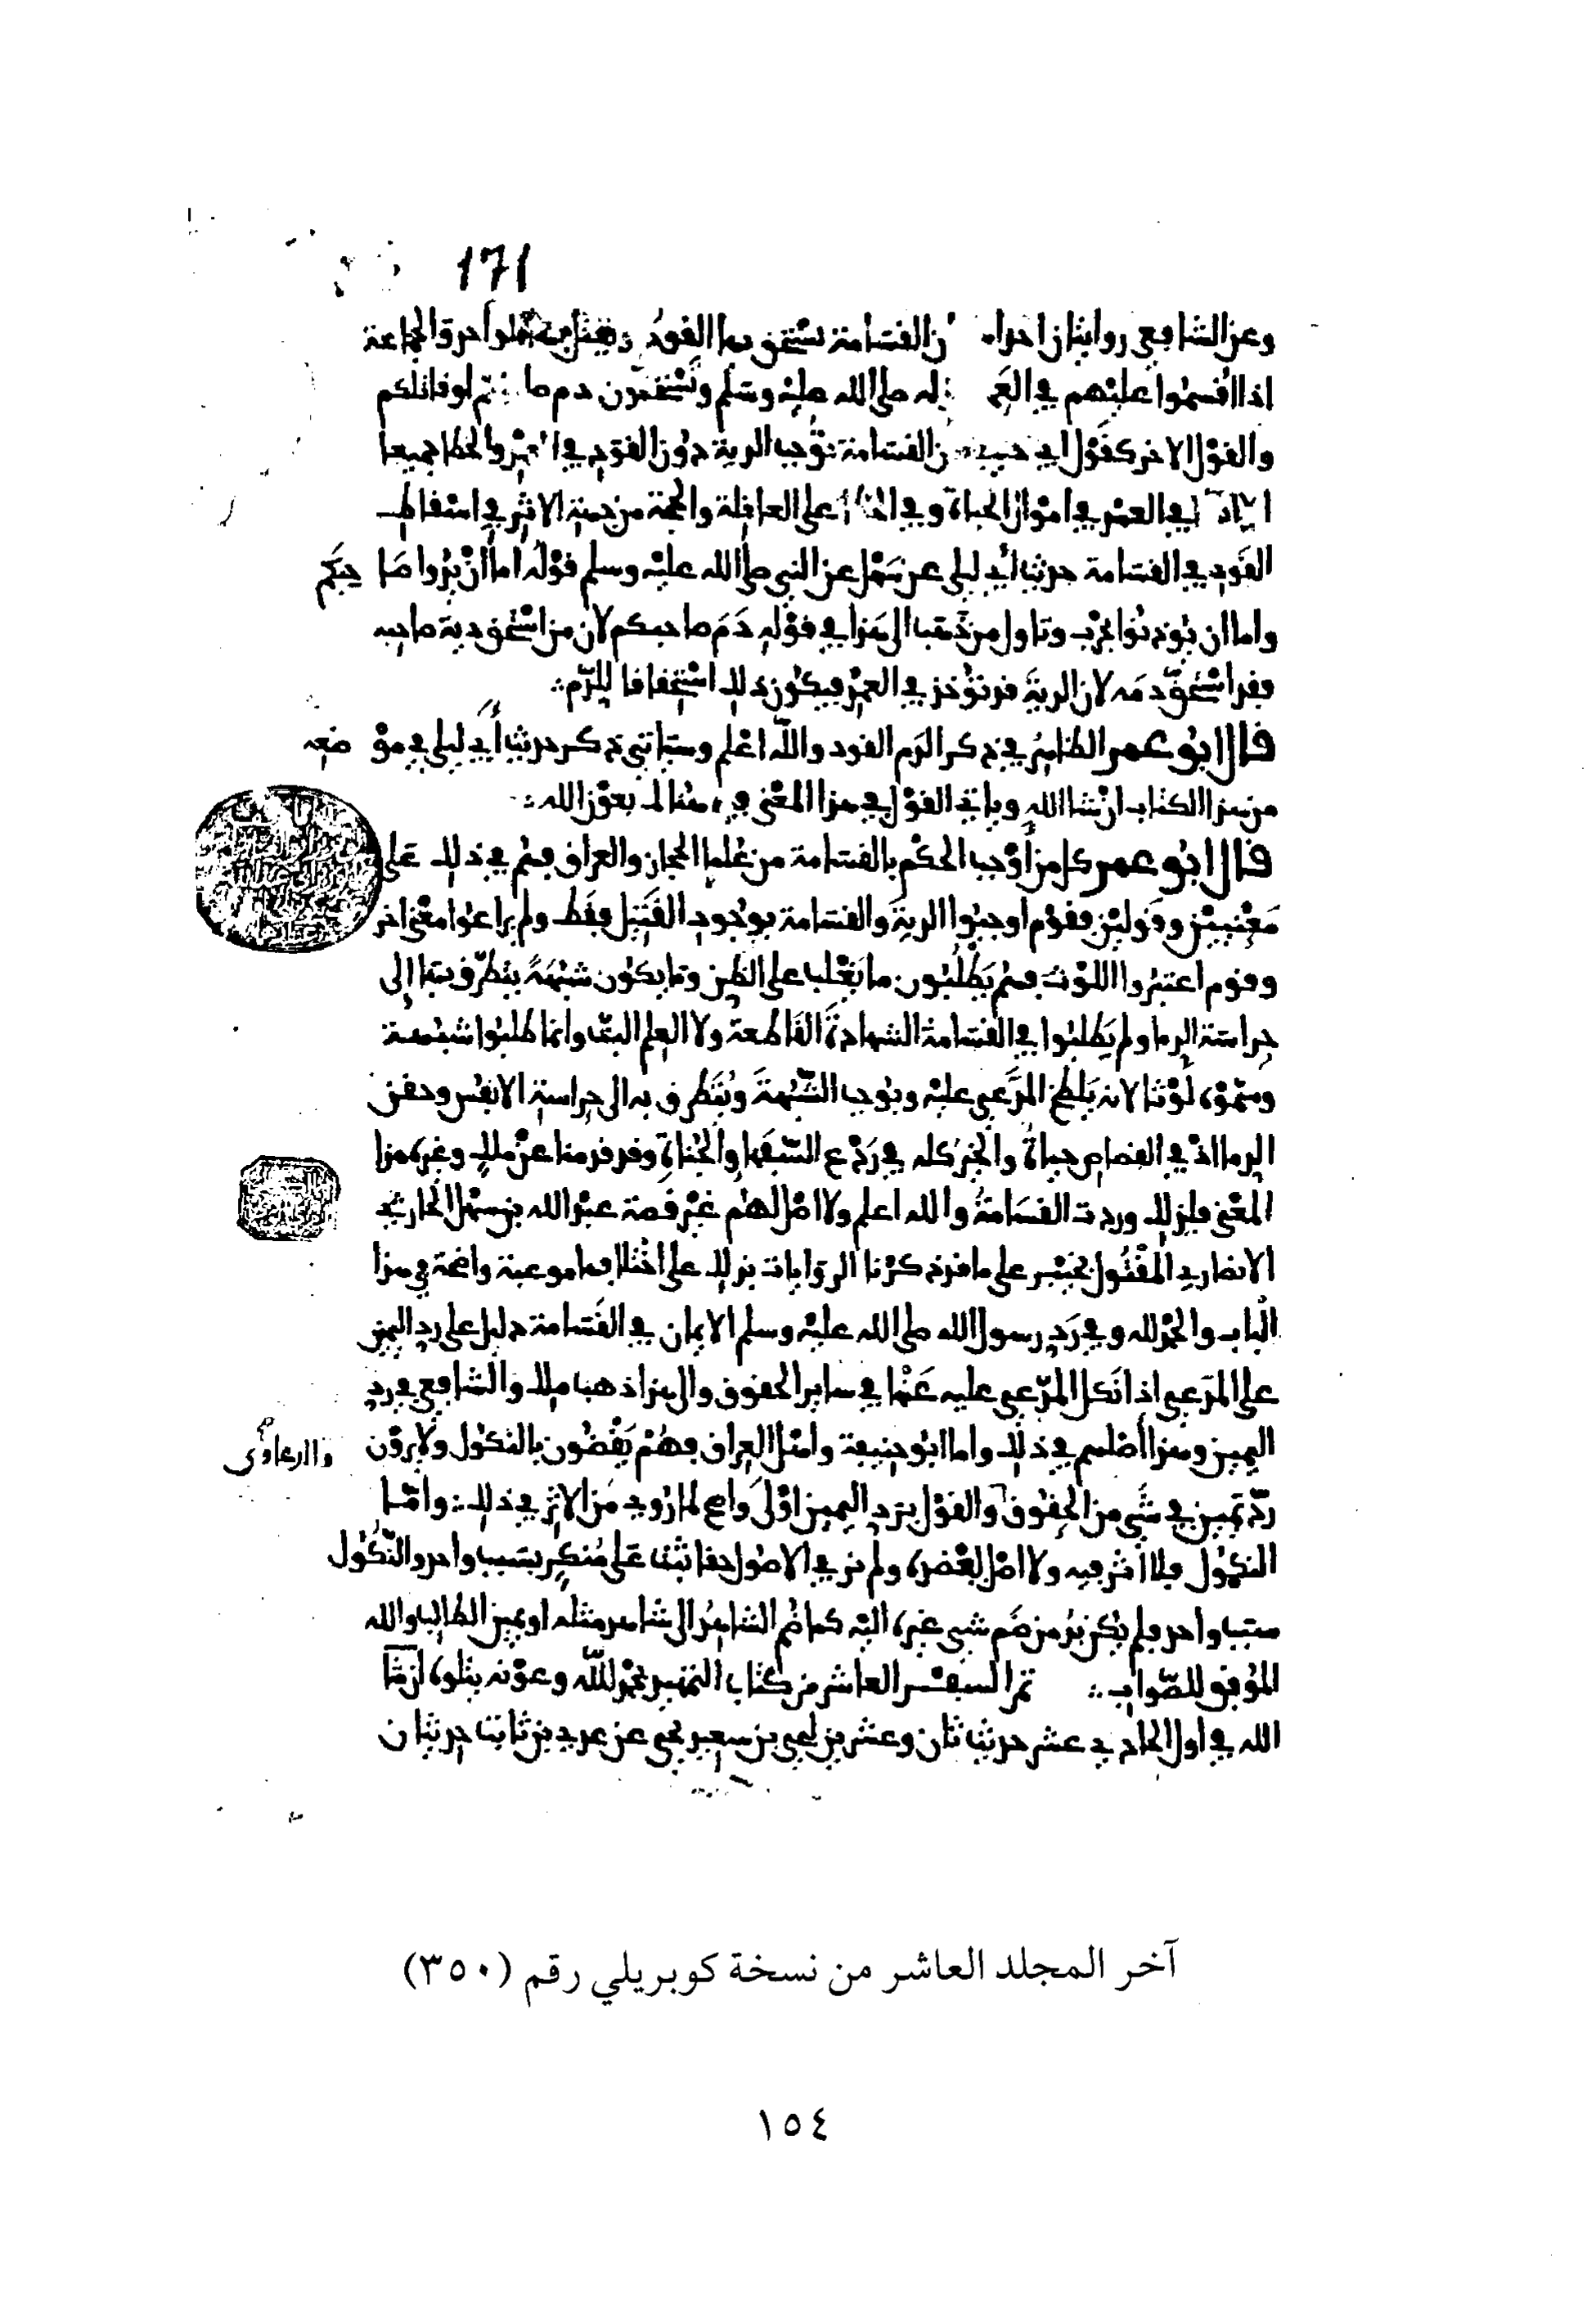 171
وعن الشافعي روايتان احداهما ان القسامة يستحق بها القود ويقتل بها الواحد والجماعة
اذا اقسموا عليهم في العمد لقوله صلى الله عليه وسلم وتستحقون دم صاحبكم او قاتلكم
والقول الاخر كقول ابي حنيفة ان القسامة توجب الدية دون القود في العمد والخطا جميعا
الا انها في العمد في اموال الجناة وفي الخطا على العاقلة والحجة من جهة الاثر في اسقاط
القود في القسامة حديث ابي ليلى عن سهل عن النبي صلى الله عليه وسلم قوله اما ان يدوا صاحبكم
واما ان يوذنوا بحرب وتاول من ذهب الى هذا في قوله دم صاحبكم لان من استحق دية صاحبه
فقد استحق دمه لان الدية قد توخذ في العمد فيكون ذلك استحقاقا للدم
قال ابو عمر الظاهر في ذكر الدم القود والله اعلم وسياتي ذكر حديث ابي ليلى في موضعه
من هذا الكتاب ان شا الله وياتي القول في هذا المعنى فيه هنالك بعون الله
قال ابو عمر كل من اوجب الحكم بالقسامة من علما الحجاز والعراق فهم في ذلك على
معنيين وقولين فقوم اوجبوا الدية والقسامة بوجود القتيل فقط ولم يراعوا معنى اخر
وقوم اعتبروا اللوث فهم يطلبون ما يغلب على الظن وما يكون شبهة يتطرق بها الى
حراسة الدما ولم يطلبوا في القسامة الشهادة القاطعة ولا العلم البت وانما طلبوا شبهة
وسموه لوثا لانه يلطخ المدعى عليه ويوجب الشبهة ويتطرق به الى حراسة الانفس وحقن
الدما اذ في القصاص حياة والخير كله في ردع السفها والجناة وقد قدمنا عن ملك وغيره هذا
المعنى فلذلك وردت القسامة والله اعلم ولا اصل لهم غير قصة عبد الله بن سهل الحارثي
الانصاري المقتول بخيبر على ما قد ذكرنا الروايات بذلك على اختلافها موعبة واضحة في هذا
الباب والحمد لله وفي رد رسول الله صلى الله عليه وسلم الايمان في القسامة دليل على رد اليمين
على المدعي اذا نكل المدعى عليه عنها في ساير الحقوق والى هذا ذهب ملك والشافعي في رد
اليمين وهذا اصلهم في ذلك واما ابو حنيفة واهل العراق فهم يقضون بالنكول ولا يرون
والدعاوى
رد يمين في شي من الحقوق والقول برد اليمين اولى واصح لما روي من الاثر في ذلك واما
النكول فلا اثر فيه ولا اصل يعضده ولم نر في الاصول حقا ثبت على منكر بسبب واحد والنكول
سبب واحد فلم يكن بد من ضم شي غيره اليه كما ضم الشاهد الى شاهد مثله او يمين الطالب والله
الموفق للصواب تم السفر العاشر من كتاب التمهيد بحمد الله وعونه يتلوه ان شا
الله في اول الحادي عشر حديث ثان وعشرين ليحيى بن سعيد يحيى عن عدي بن ثابت حديثان
آخر المجلد العاشر من نسخة كوبريلي رقم (٣٥٠)
١٥٤